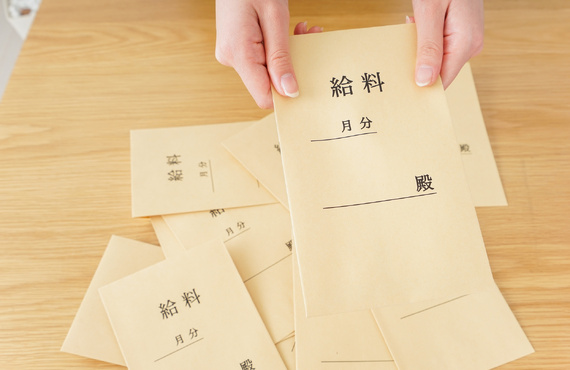 給料
月分
殿
給料
月分
給料
月分
殿
殿
給料
月分
殿